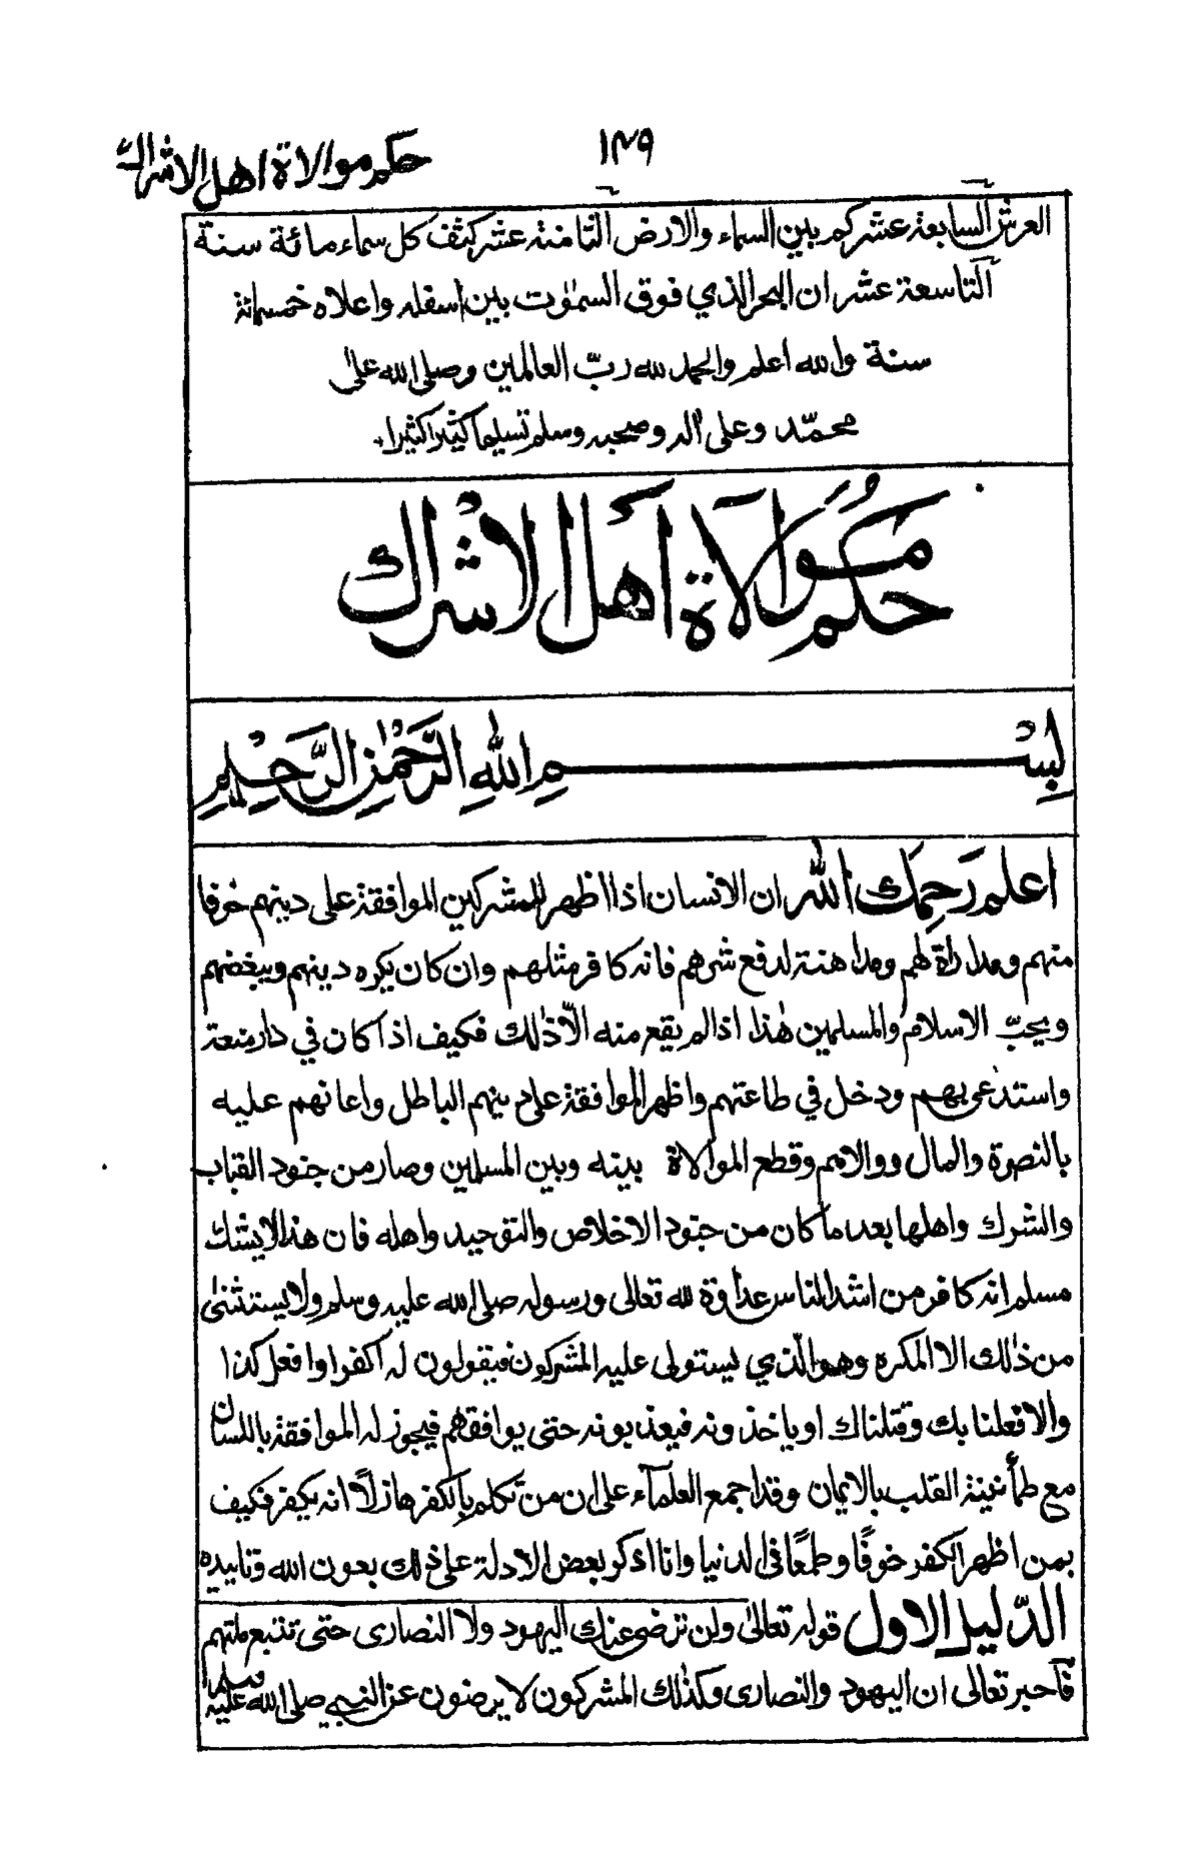 ١٤٩
حكم موالاة اهل الاشراك
العرش السابعة عشر كم بين السماء والارض الثامنة عشر كثف كل سماء مائة سنة
التاسعة عشر ان البحر الذي فوق السمٰوت بين اسفله واعلاه خمسمائة
سنة والله اعلم والحمد لله ربّ العالمين وصلى الله على
محمّد وعلى اٰله وصحبه وسلم تسليما كثيرا كثيرا
حكم موالاة اهل الاشراك
بِسْمِ اللهِ الرَّحْمٰنِ الرَّحِيْمِ
اعلم رَحِمَك الله ان الانسان اذا اظهر للمشركين الموافقة على دينهم خوفا
منهم ومداراة لهم ومداهنة لدفع شرهم فانه كافر مثلهم وان كان يكره دينهم ويبغضهم
ويحبّ الاسلام والمسلمين هٰذا اذا لم يقع منه الّا ذٰلك فكيف اذا كان في دار منعة
واستدعى بهم ودخل في طاعتهم واظهر الموافقة على دينهم الباطل واعانهم عليه
بالنصرة والمال ووالاهم وقطع الموالاة بينه وبين المسلمين وصار من جنود القباب
والشرك واهلها بعد ما كان من جنود الاخلاص والتوحيد واهله فان هذا لا يشك
مسلم انه كافر من اشد الناس عداوة لله تعالى ورسوله صلى الله عليه وسلم ولا يستثنىٰ
من ذٰلك الا المكره وهو الّذي يستولى عليه المشركون فيقولون له اكفر او افعل كذا
والا فعلنا بك وقتلناك او ياخذونه فيعذبونه حتى يوافقهم فيجوز له الموافقة باللسان
مع طمأنينة القلب بالايمان وقد اجمع العلمآء على ان من تكلم بالكفر هازلًا انه يكفر فكيف
بمن اظهر الكفر خوفًا وطمعًا في الدنيا وانا اذكر بعض الادلة على ذٰلك بعون الله وتاييده
الدّليل الاول قوله تعالىٰ ولن ترضى عنك اليهود ولا النصارى حتى تتبع ملتهم
فاخبر تعالى ان اليهود والنصارى وكذٰلك المشركون لا يرضون عن النبي صلى الله عليه وسلم